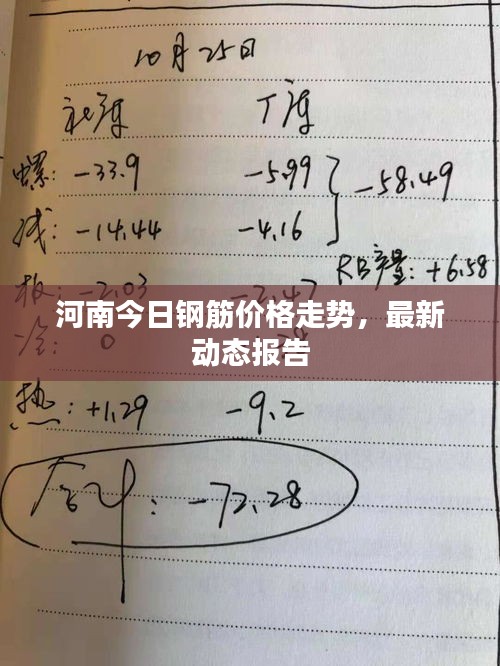 10月25日
社库 厂库
螺: -33.9 -5.99 } -58.49
线: -14.44 -4.16
RB产量: +6.58
板: -2.03 -2.47
河南今日钢筋价格走势，最新
动态报告
冷: 0
热: +1.29 -9.2
合计: -72.28